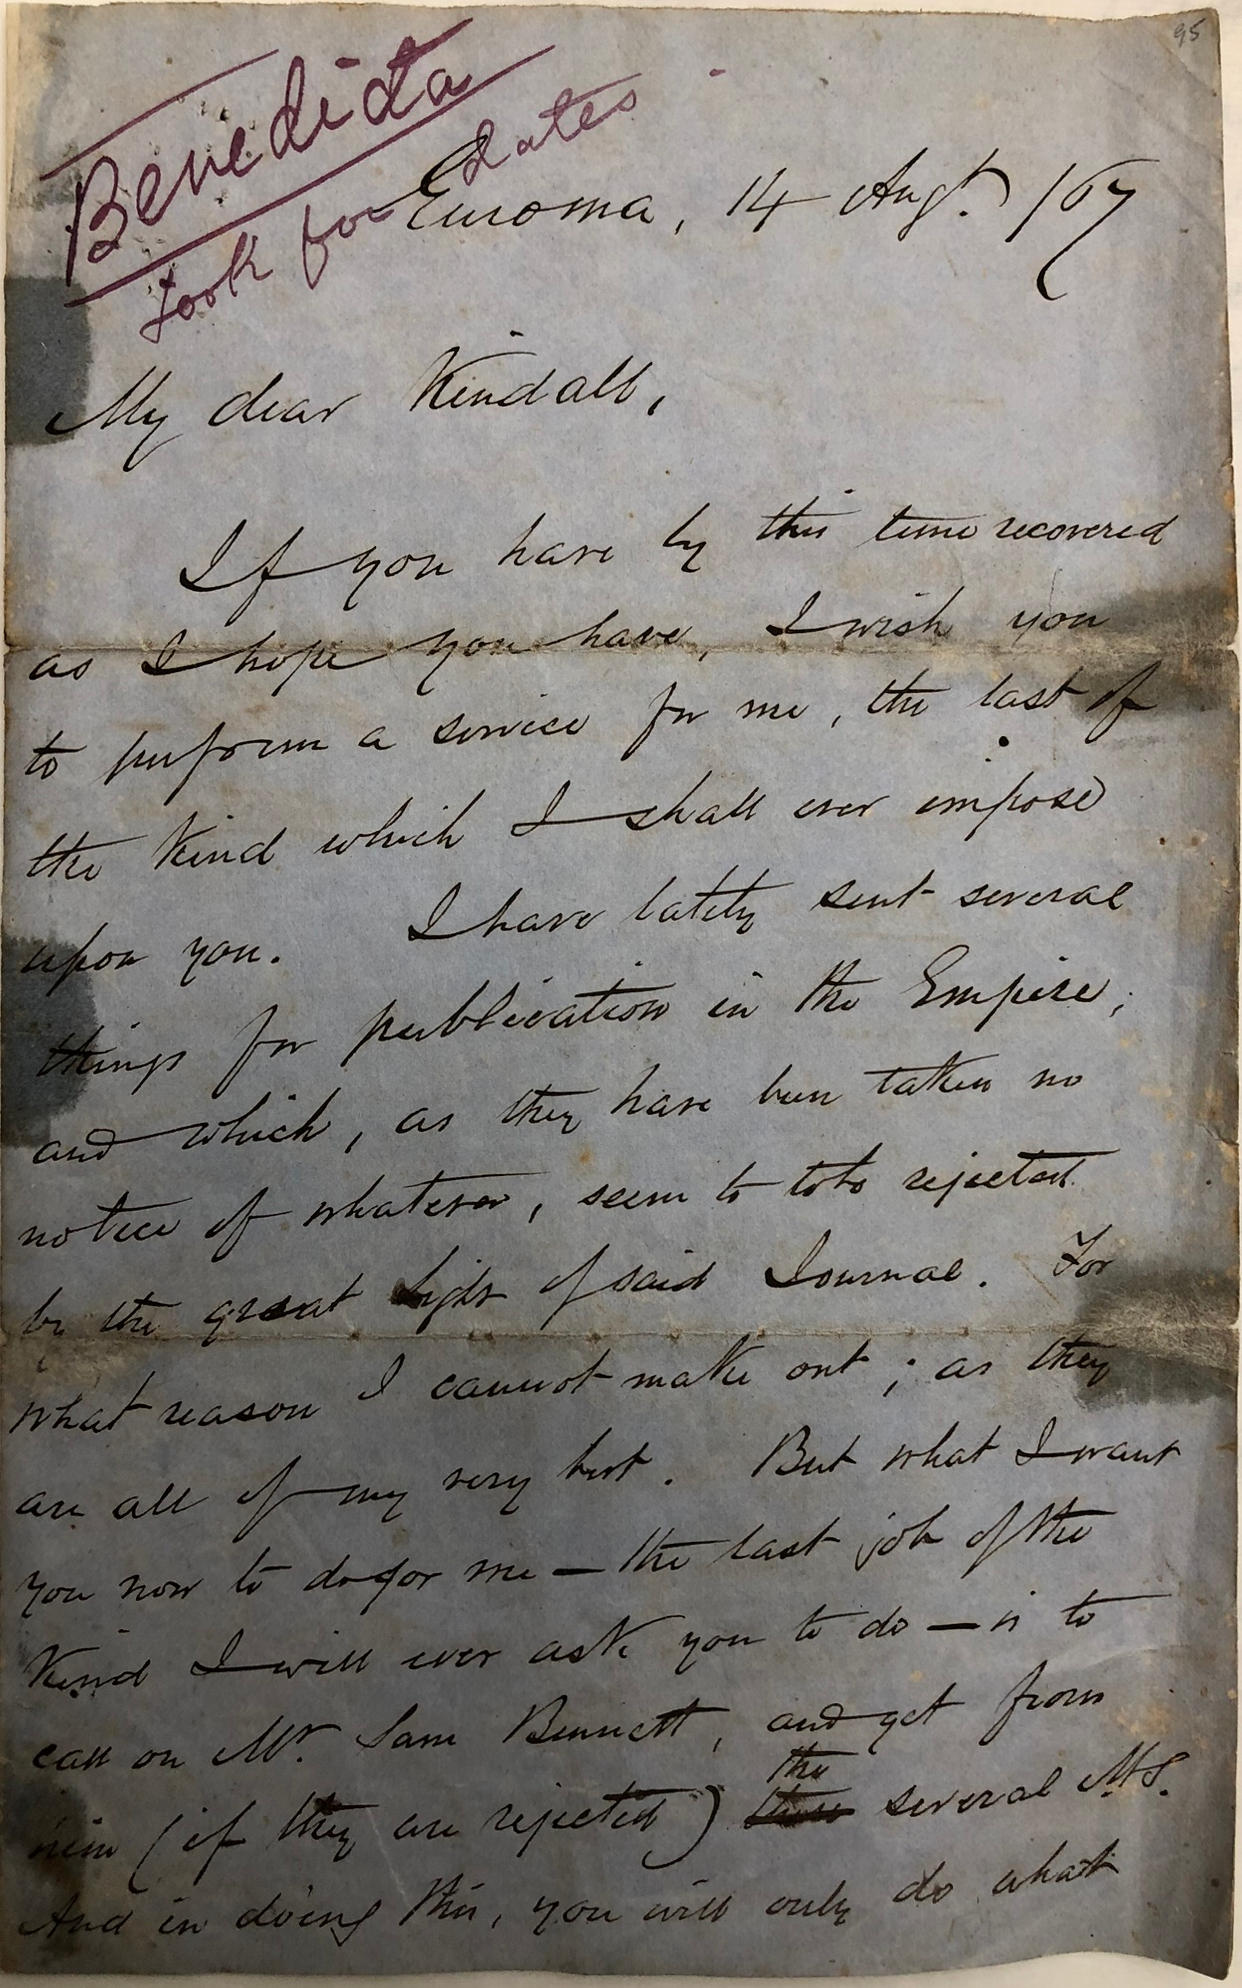 95
Benedicta
Look for dates
Euroma, 14 Augt. /67
My dear Kendall,
If you have by this time recovered
as I hope you have, I wish you
to perform a service for me, the last of
the kind which I shall ever impose
upon you. I have lately sent several
things for publication in the Empire;
and which, as they have been taken no
notice of whatever, seem to be rejected
by the great light of said Journal. For
what reason I cannot make out; as they
are all of my very best. But what I want
you now to do for me — the last job of the
kind I will ever ask you to do — is to
call on Mr. Sam Bennett, and get from
him (if they are rejected) the several M.S.
And in doing this, you will only do what